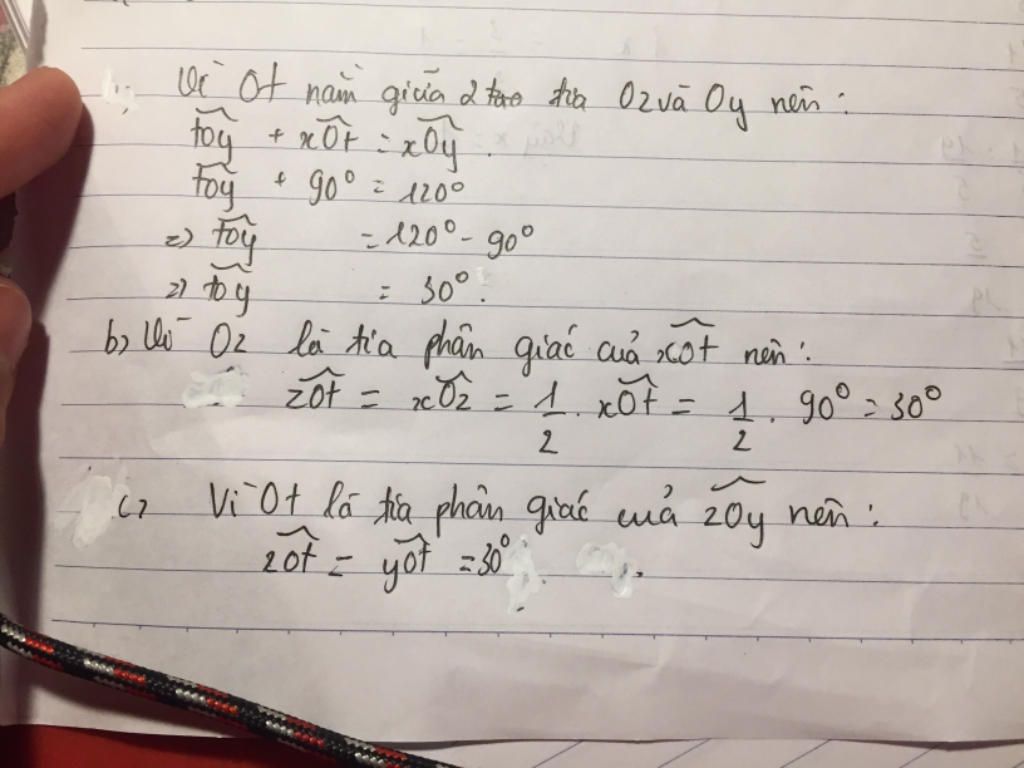 Vì Ot nằm giữa 2 tao tia Oz và Oy nên:
tOy + xOt = xOy.
tOy + 90° = 120°
=> tOy = 120° - 90°
=> tOy = 30°.
b) Vì Oz là tia phân giác của xOt nên:
zOt = xOz = 1/2 . xOt = 1/2 . 90° = 30°
c) Vì Ot là tia phân giác của zOy nên:
zOt = yOt = 30°